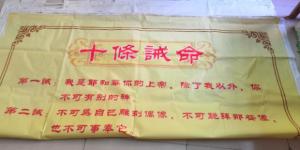 十條誡命
第一誡：我是耶和華你的上帝。除了我以外，你
不可有別的神
第二誡：不可為自己雕刻偶像，不可跪拜那些像，
也不可事奉它